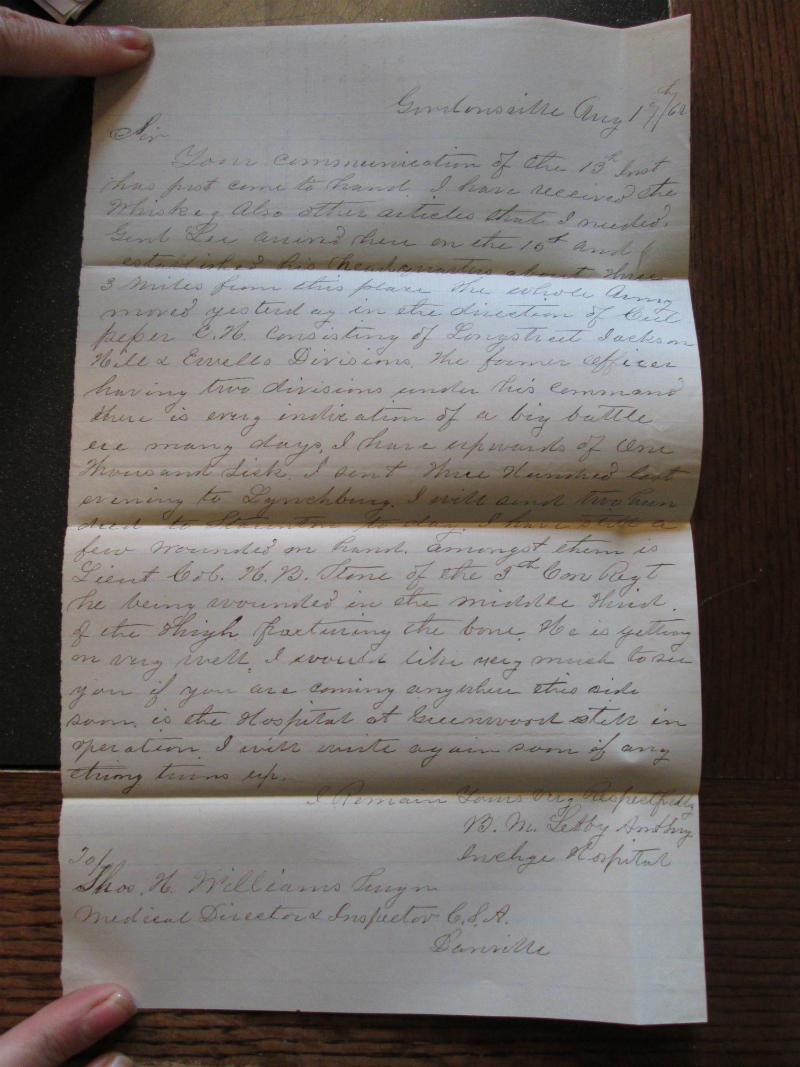 Gordonsville Aug 17th/62
Sir
Your communication of the 13th Inst
has just come to hand I have received the
Whiskey Also other articles that I needed.
Genl Lee arrived here on the 15th and
established his headquarters about three
3 miles from this place the whole Army
moved yesterday in the direction of Cul
peper C. H. consisting of Longstreet Jackson
Hill & Ewells Divisions. The former officer
having two divisions under his command
there is every indication of a big battle
ere many days. I have upwards of One
thousand sick. I sent three Hundred last
evening to Lynchburg. I will send two hun
dred to Staunton to day. I have still a
few wounded on hand. amongst them is
Lieut Col. H. B. Stone of the Con Regt
he being wounded in the middle third
of the thigh fracturing the bone. He is getting
on very well. I would like very much to see
you if you are coming anywhere this side
soon. is the Hospital at Greenwood still in
operation I will write again soon if any
thing turns up.
I Remain Yours Very Respectfully
B. M.
Inchge Hospital
To/
Thos. H. Williams Surgn
Medical Director & Inspector C.S.A.
Danville